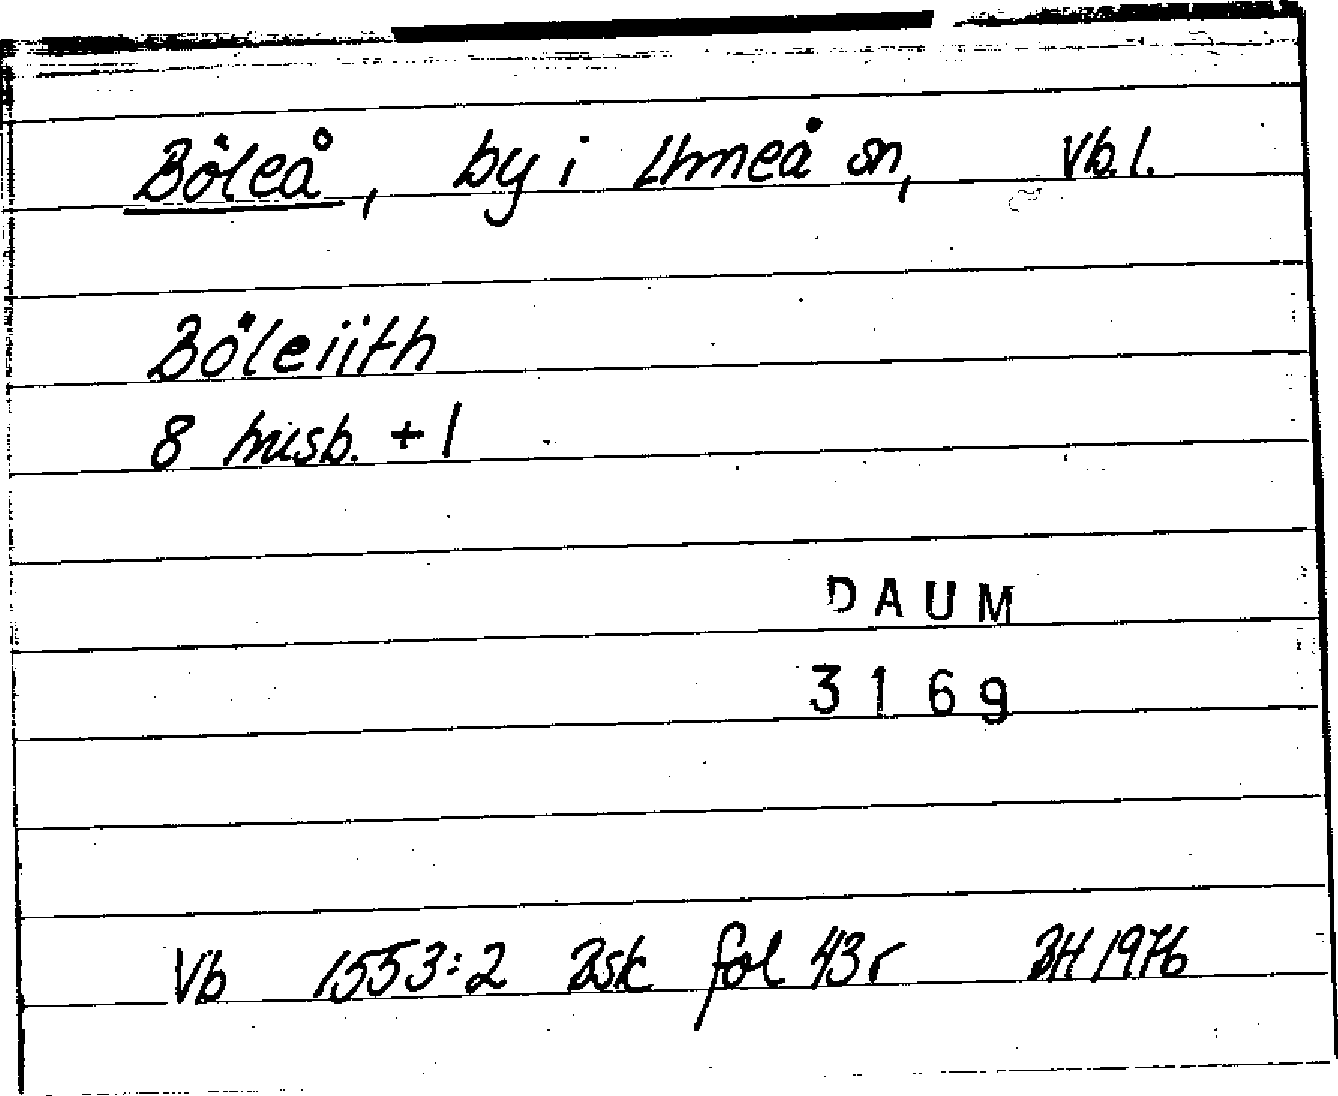 Böleå, by i Umeå sn, Vb. l.
Böleiith
8 husb. + 1
DAUM
3169
Vb 1553:2 Bsk fol 43r BH 1976